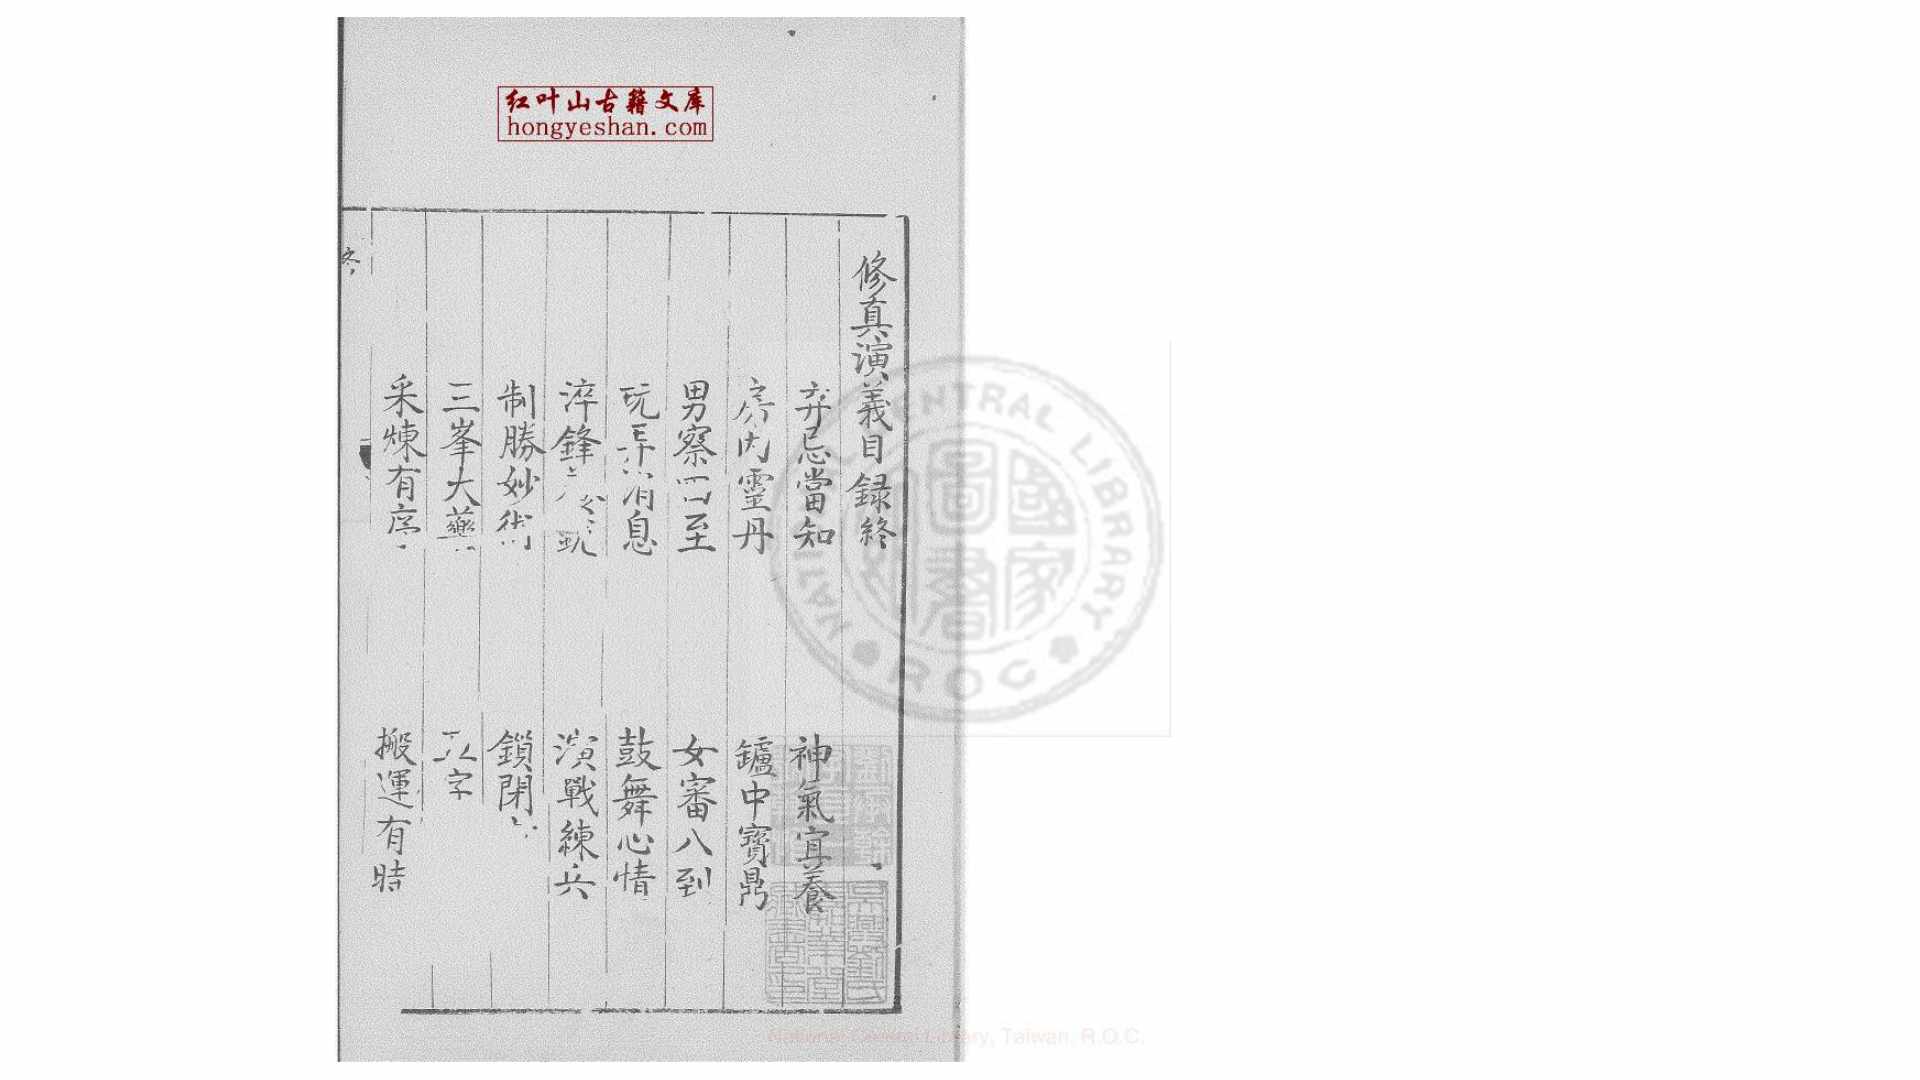 红叶山古籍文库
hongyeshan.com
修真演義目録終
弃忌當知 神氣宜養
房内靈丹 鑪中寳鼎
男察四至 女審八到
玩弄消息 鼓舞心情
淬鋒 鋭 演戰練兵
制勝妙術 鎖閉
三峯大藥 五字
采煉有序 搬運有時
NATIONAL CENTRAL LIBRARY
R.O.C.
國家圖書
National Central Library, Taiwan, R.O.C.